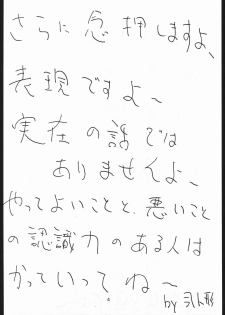 さらに念押しますよ、
表現ですよ～
実在の話では
ありませんよ、
やってよいことと、悪いこと
の認識力のある人は
かっていって、ね～
by 弓人形